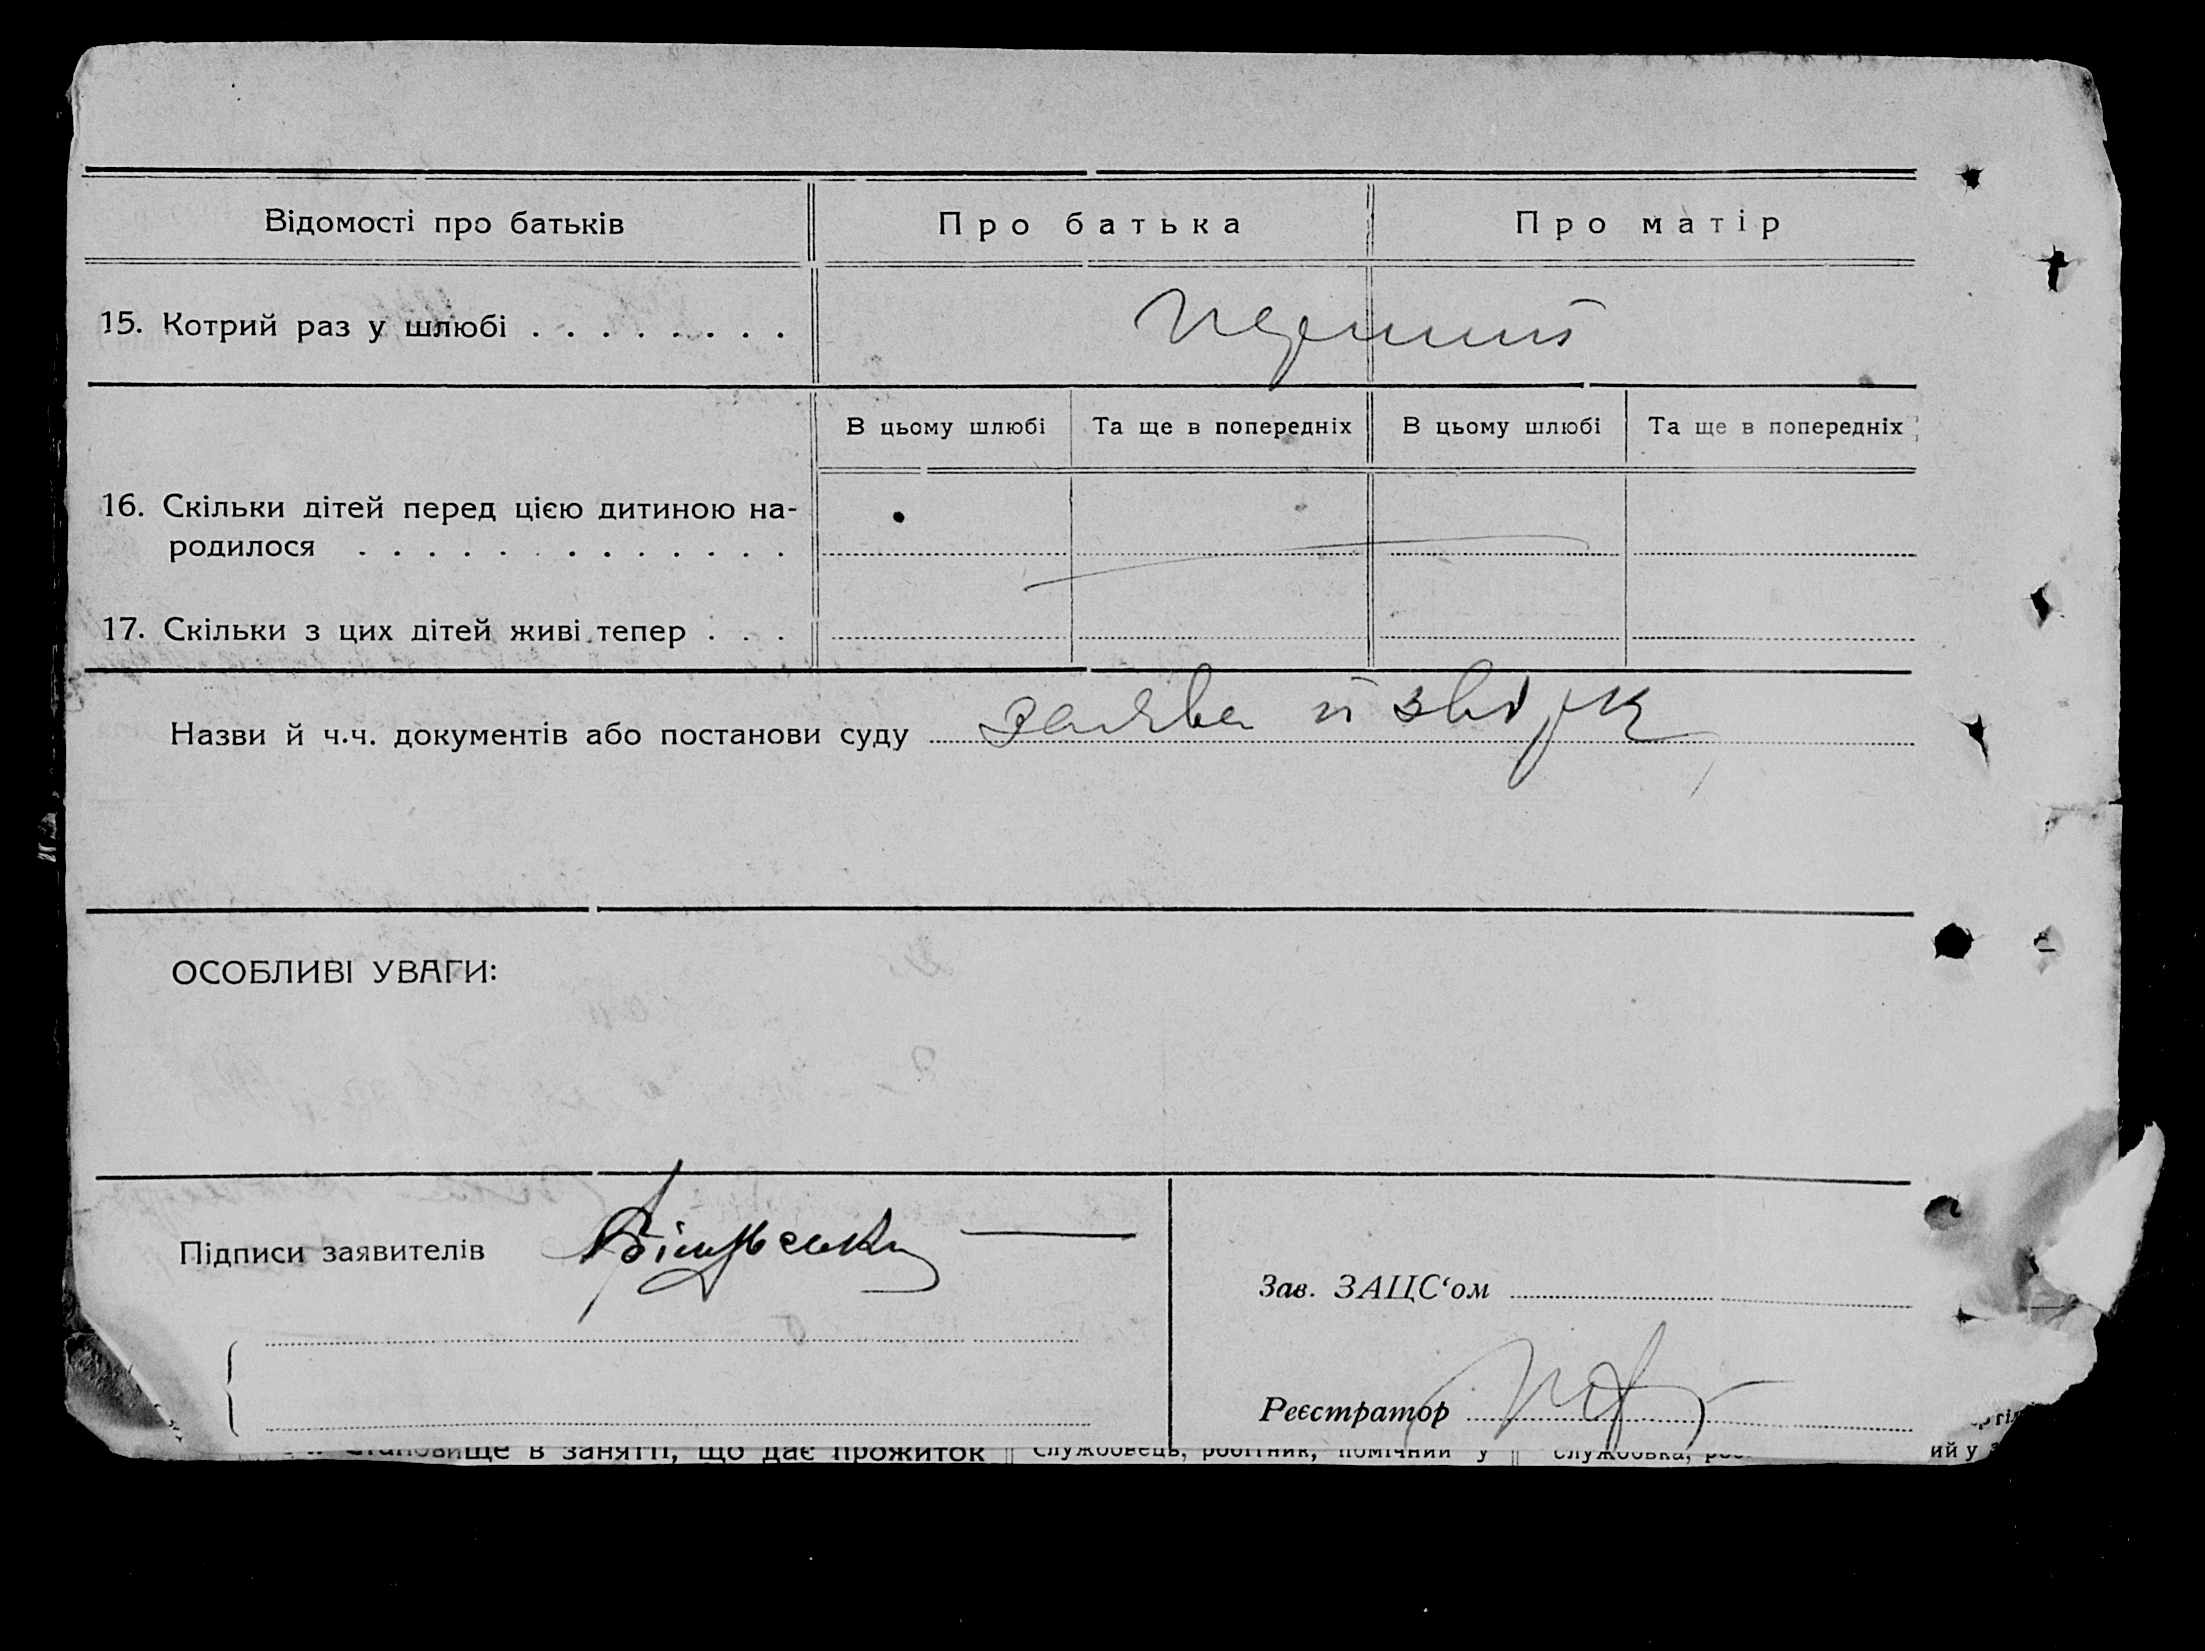 Відомості про батьків Про батька Про матір
15. Котрий раз у шлюбі . . . . . . . . перший
В цьому шлюбі Та ще в попередніх В цьому шлюбі Та ще в попередніх
16. Скільки дітей перед цією дитиною на-
родилося . . . . . . . . . . . . .
17. Скільки з цих дітей живі тепер . . .
Назви й ч.ч. документів або постанови суду заява й
ОСОБЛИВІ УВАГИ:
Підписи заявителів
Зав. ЗАЦС‘ом
Реєстратор
Становище в занятті, що дає прожиток службовець, робітник, помічний у службовка,
ий у